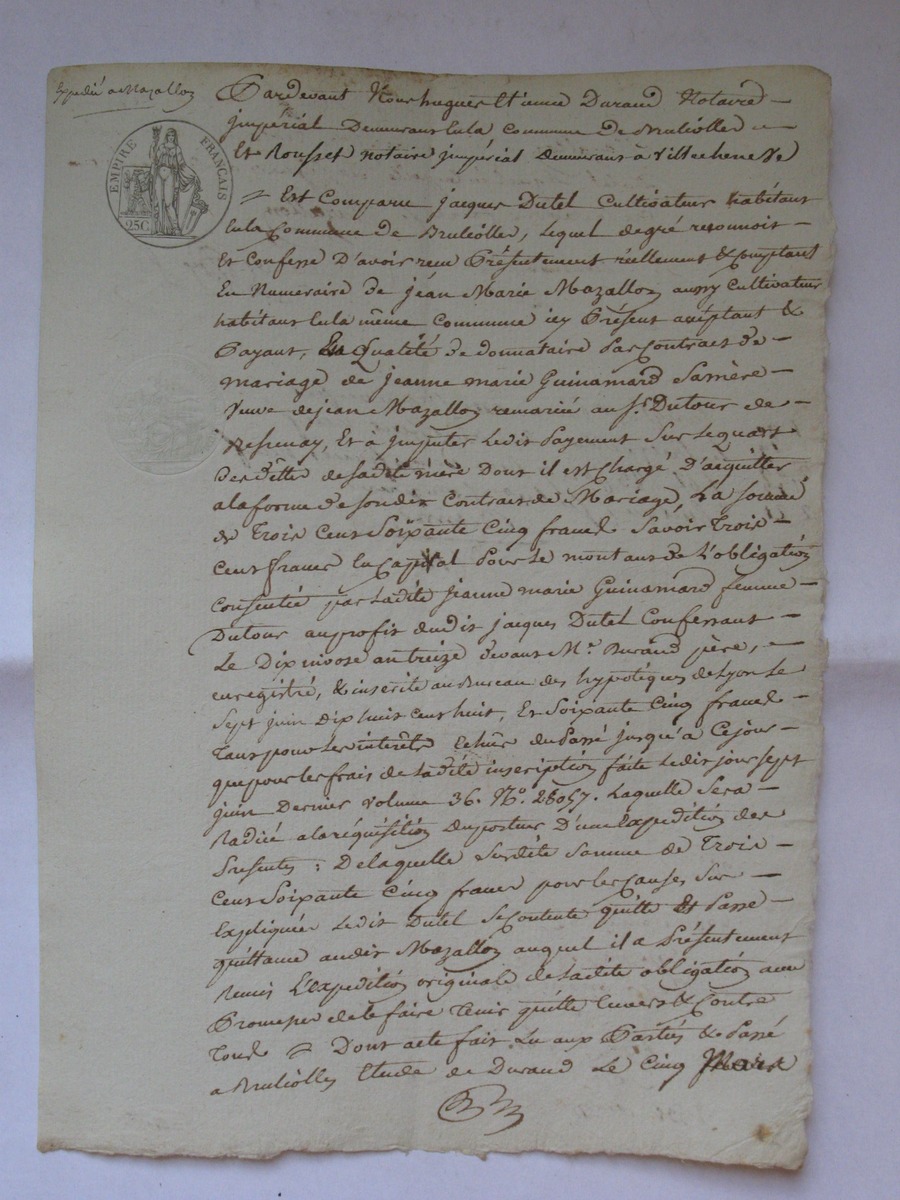 Expedié a Mazallon
EMPIRE FRANÇAIS
25C
Pardevant Nous hugues Etienne Durand Notaire
jmpérial Demeurant En la Commune de Bruliólles
Et Rousset notaire jmpérial demeurant à Villechenéve
Est Comparu jacques Dutel Cultivateur habitant
En la Commune de Brulióller, lequel de gré reconnoit
Et Confesse D'avoir recu Présentement réellement & Comptant
En Numeraire de jéan Marie Mazallon aussy Cultivateur
habitant En la même Commune icy Présent acéptant &
Payant, En Qualité de donnataire par Contract de
mariage de jeanne marie Guinamard Sa mère
Veuve de jean Mazallon remariée au Sr. Dutour de
, Et à jmputer Ledit Payement Sur Le quart
Des dêttes de sadite mère Dont il est Chargé D'acquitter
a la forme de son dit Contract de Mariage, La somme
de Trois Cent Soixante Cinq francs Savoir Trois
Cent francs En Capital Pour Le montant de L'obligation
Consentie par Ladite Jeanne marie Guinamard femme
Dutour au profit dudit jacques Dutel Confessant
Le Dix nivose an treize devant Me. Durand père,
enregistré, & inscrite au Bureau des hypotéques de Lyon Le
Sept juin Dix huit cent huit, Et Soixante Cinq francs
Tant pour Les interêts Echûs du Passé jusqu'à Ce jour
que pour les frais de Ladite inscription faite Ledit jour sept
juin Dernier Volume 36. No. 28057. Laquelle Sera
Radiée a la réquisition du porteur D'une Expedition des
Presentes ; De laquelle Susdite Somme de Trois
Cent Soixante Cinq francs pour les Causes Sus
Expliquées Ledit Dutel Se Contente quitte Et Passe
quittance audit Mazallon auquel il a Présentement
Remis L'expedition originale de Ladite obligation avec
Promesse de le faire Tenir quitte Envers & Contre
Tous Dont acte fait Lu aux Parties & Passé
a Brulióles Etude de Durand Le Cinq Mars